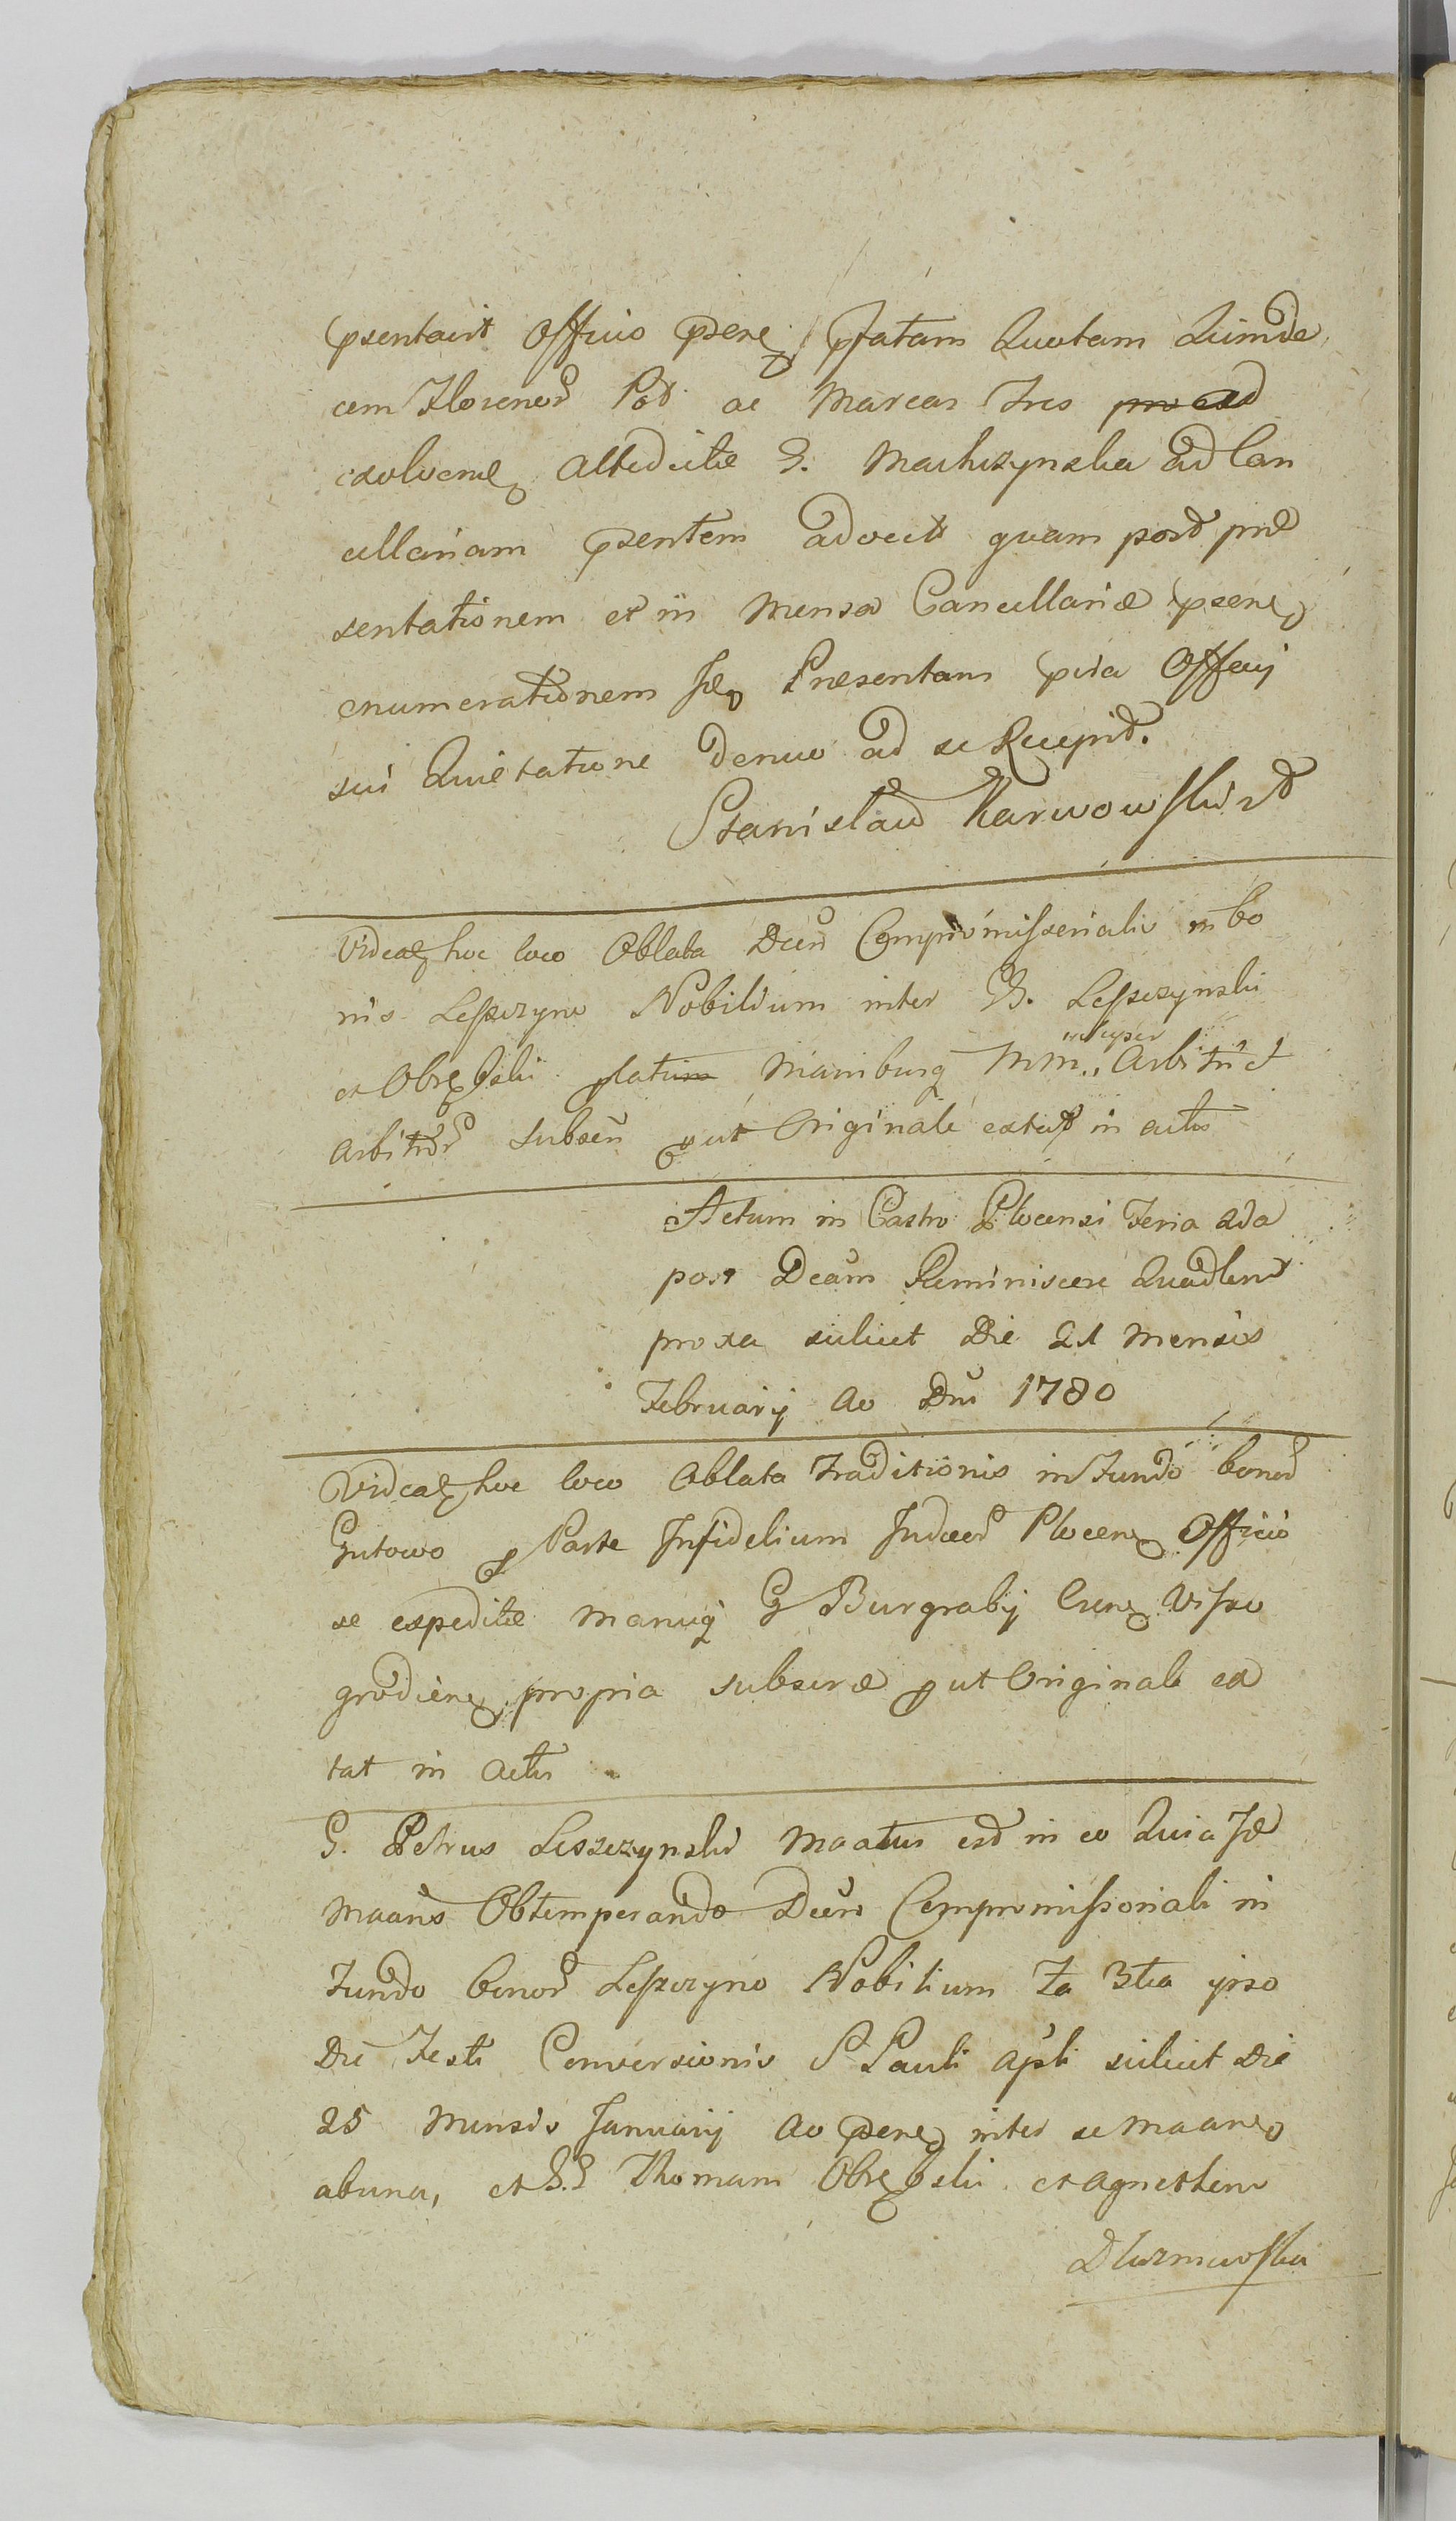 psentavit Officio psenę pfatam Quotam Quinde
cem Florenor Pol ac Marcas Tres ad
exolvenę altedictæ G. Machczynska ad Can
cellariam psentem advexit quam post præ
sentationem et in Mensa Cancellariæ psenę
enumerationem Præsentans pvia Offcij
sui Quietatione denuo ad se Recepit.
Stanislaw Karwowski
Videaę hoc loco Oblata Decti Compromissorialis in bo
nis Leszczyno Nobilium inter GG. Leszczynski
et Obrębski latum Manibusq MM. Arbitri et
Arbitror Subscri put Originale extat in actis
Actum in Castro Plocensi Feria 2da
post Dcam Reminiscere Quadlem
proxa scilicet Die 21 Mensis
Februarij Ao Dni 1780
Videaę hoc loco Oblata Traditionis in Fundo bonor
Gutowo p Parte Infidelium Judæor Plocenę Officio
se expeditæ manuq G Burgrabij Crenę Wisso
grodienę propria subscræ put Originale ex
tat in actis
G. Petrus Leszczynski Maatus est in eo Quia Jæ
Maans Obtemperando Decto Compromissoriali in
Fundo bonor Leszczyno Nobilium Fa 3tia ipso
Die Festi Conversionis S Pauli Apsli scilicet Die
25 Mensis Januarij Ao psenę inter se Maanę
abuna, et G.G Thomam Obrębski et Agnethem
Dluzniewska